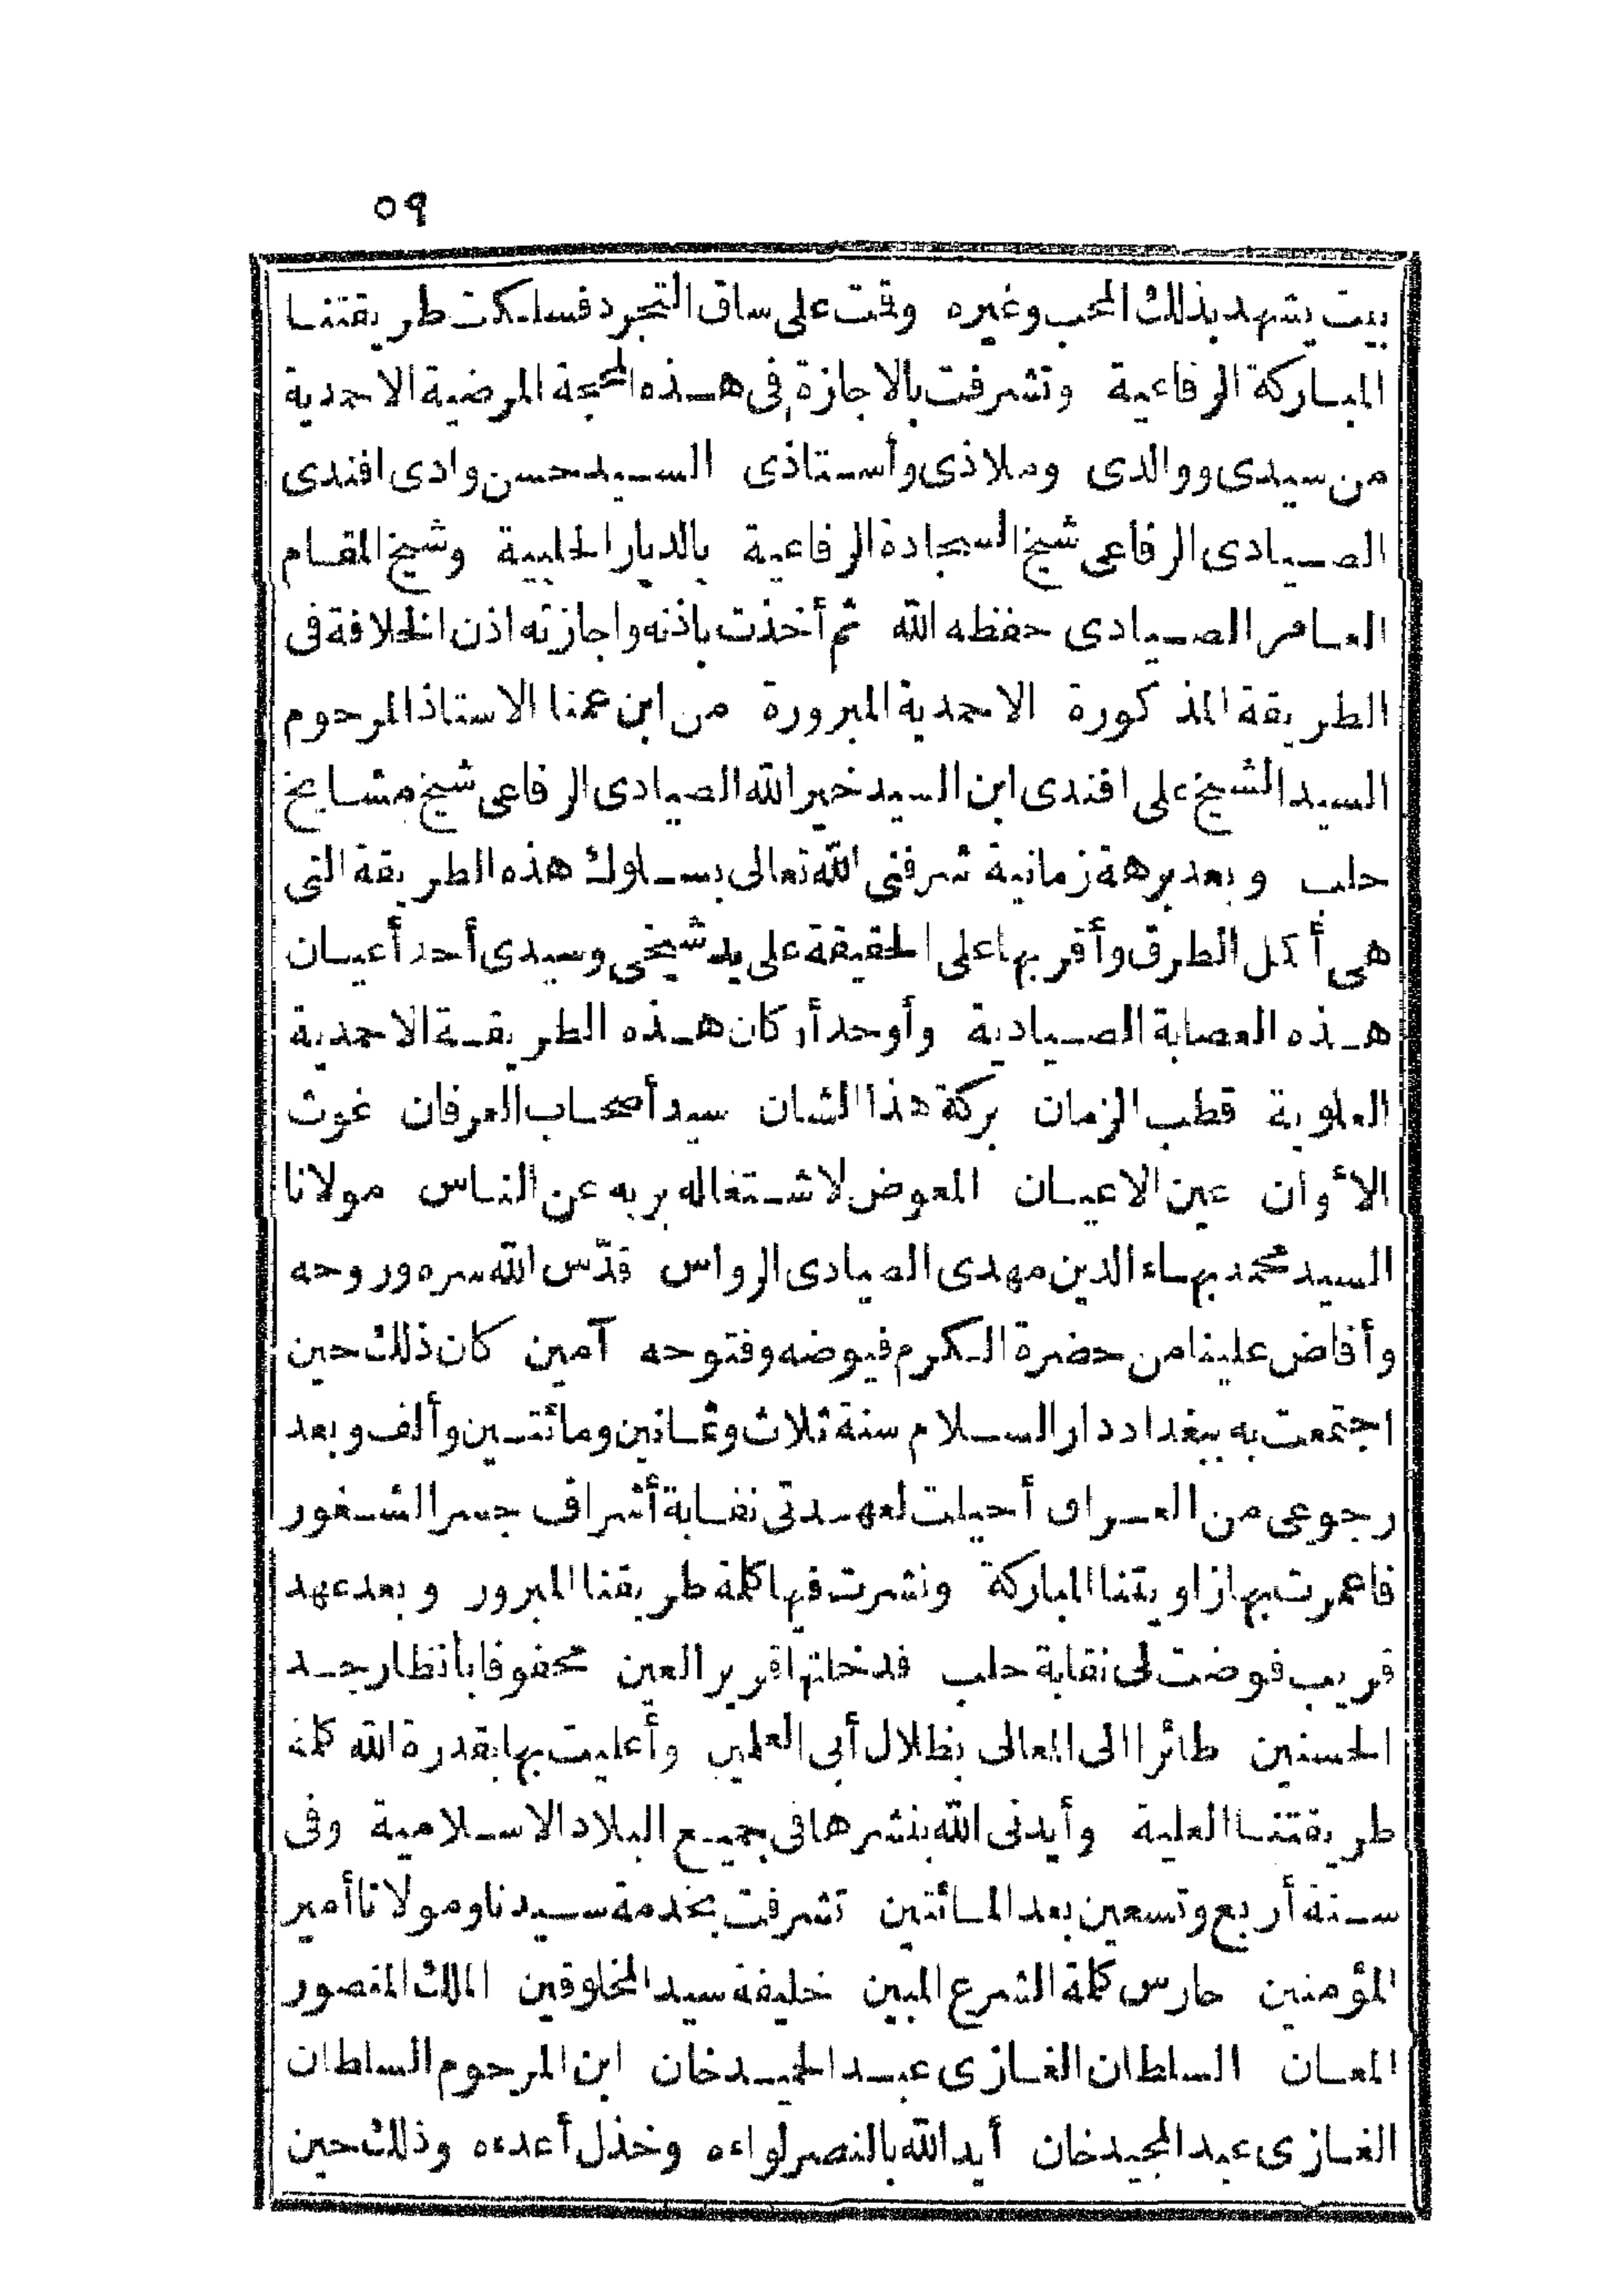 ٥٩
بيت يشهد بذلك المحب وغيره وقمت على ساق التجرد فسلكت طريقتنا
المباركة الرفاعية وتشرفت بالاجازة فى هذه المحجة المرضية الاحمدية
من سيدى ووالدى وملاذى وأستاذى السيد حسن وادى افندى
الصيادى الرفاعى شيخ السجادة الرفاعية بالديار الحلبية وشيخ المقام
العامر الصيادى حفظه الله ثم أخذت باذنه واجازته اذن الخلافة فى
الطريقة المذكورة الاحمدية المبرورة من ابن عمنا الاستاذ المرحوم
السيد الشيخ على افندى ابن السيد خير الله الصيادى الرفاعى شيخ مشايخ
حلب وبعد برهة زمانية شرفنى الله تعالى بسلوك هذه الطريقة التى
هى أكمل الطرق وأقربها على الحقيقة على يد شيخى وسيدى أحد أعيان
هذه العصابة الصيادية وأوحد أركان هذه الطريقة الاحمدية
العلوية قطب الزمان بركة هذا الشان سيد أصحاب العرفان غوث
الأوان عين الاعيان المعوض لاشتغاله بربه عن الناس مولانا
السيد محمد بهاء الدين مهدى الصيادى الرواس قدّس الله سره وروحه
وأفاض علينا من حضرة الكرم فيوضه وفتوحه آمين كان ذلك حين
اجتمعت به ببغداد دار السلام سنة ثلاث وثمانين ومائتين وألف وبعد
رجوعى من العراق أحيلت لعهدتى نقابة أشراف جسر الشغور
فاعمرت بها زاويتنا المباركة ونشرت فيها كلمة طريقنا المبرور وبعد عهد
قريب فوضت لى نقابة حلب فدخلتها قرير العين محفوفا بأنظار جد
الحسنين طائرا الى المعالى بظلال أبى العلمين وأعليت بها بقدرة الله كلمة
طريقتنا العلية وأيدنى الله بنشرها فى جميع البلاد الاسلامية وفى
سنة أربع وتسعين بعد المائتين تشرفت بخدمة سيدنا ومولانا أمير
المؤمنين حارس كلمة الشرع المبين خليفة سيد المخلوقين الملك المنصور
المعان السلطان الغازى عبد الحميد خان ابن المرحوم السلطان
الغازى عبد المجيد خان أيد الله بالنصر لواءه وخذل أعدءه وذلك حين